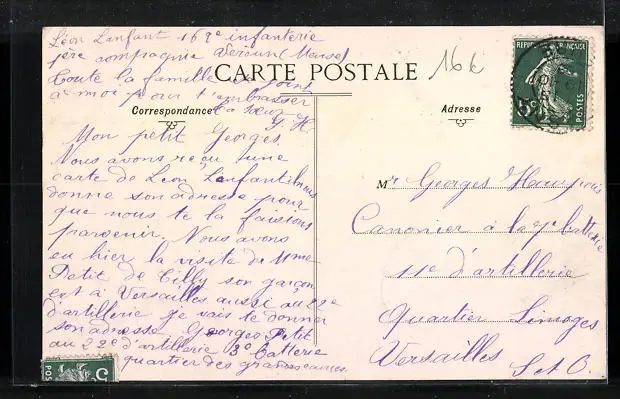 Léon Lanfant 162e infanterie
1ère compagnie Verdun (Meuse)
Toute la famille se joint
à moi pour t'embrasser
ta sœur
G. H.
CARTE POSTALE
16 €
Correspondance
Adresse
RÉPUBLIQUE FRANÇAISE
5c
POSTES
Mon petit Georges,
Nous avons reçu une
carte de Léon Lanfant il nous
donne son adresse pour
que nous te la faisions
parvenir. Nous avons
eu hier la visite de Mme
Petit de Tilly son garçon
est à Versailles aussi au 22e
d'artillerie je vais te donner
son adresse Georges Petit
au 22e d'artillerie 3e batterie
quartier des grandes écuries.
Mr Georges
Canonier à la 7e batterie
11e d'artillerie
Quartier Limoges
Versailles
S et O.
5c
POS